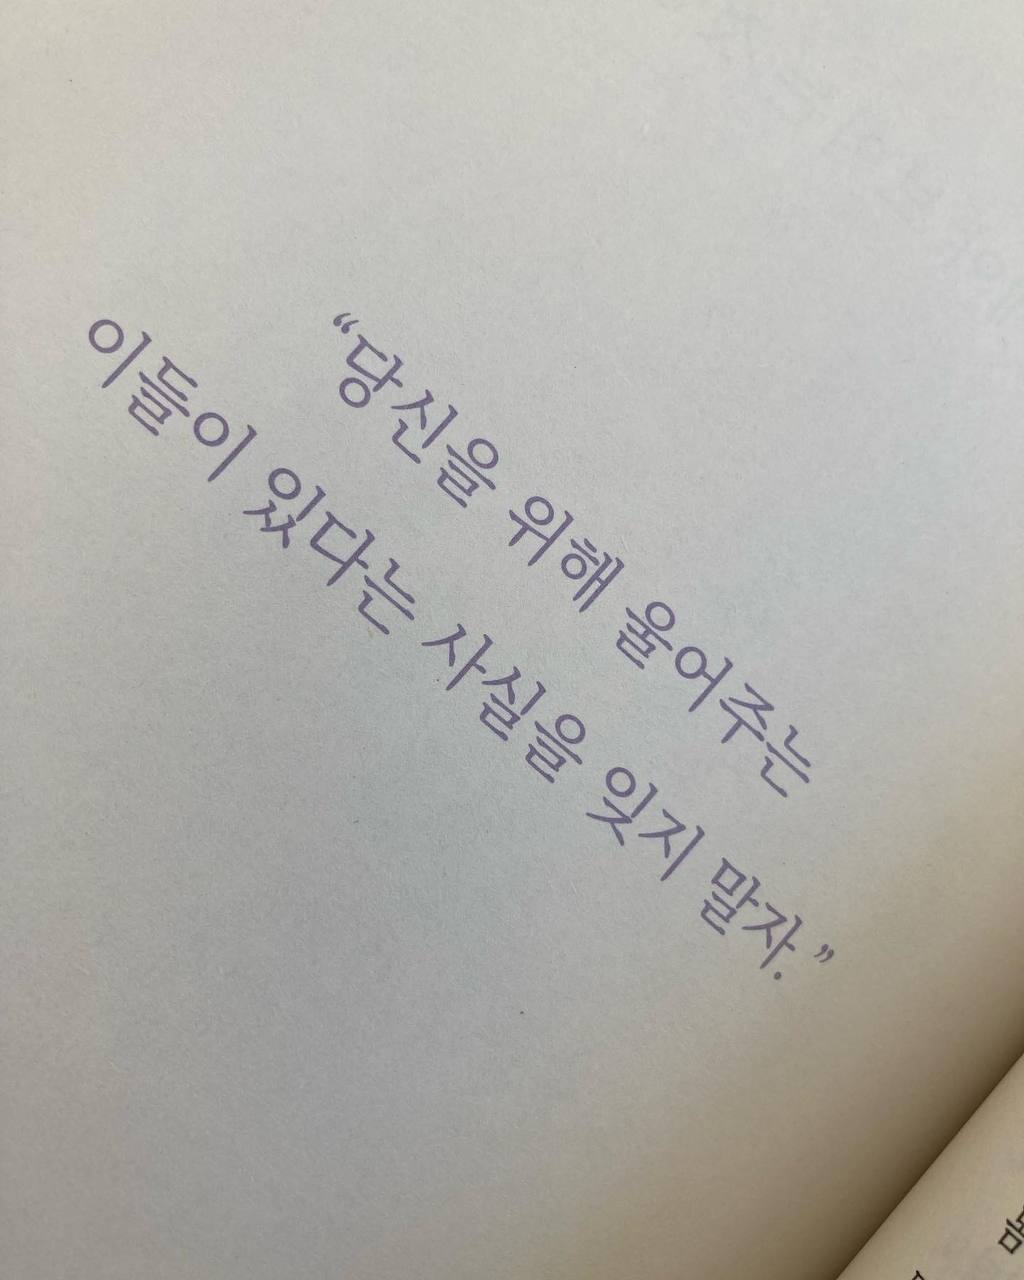 “당신을 위해 울어주는
이들이 있다는 사실을 잊지 말자.”